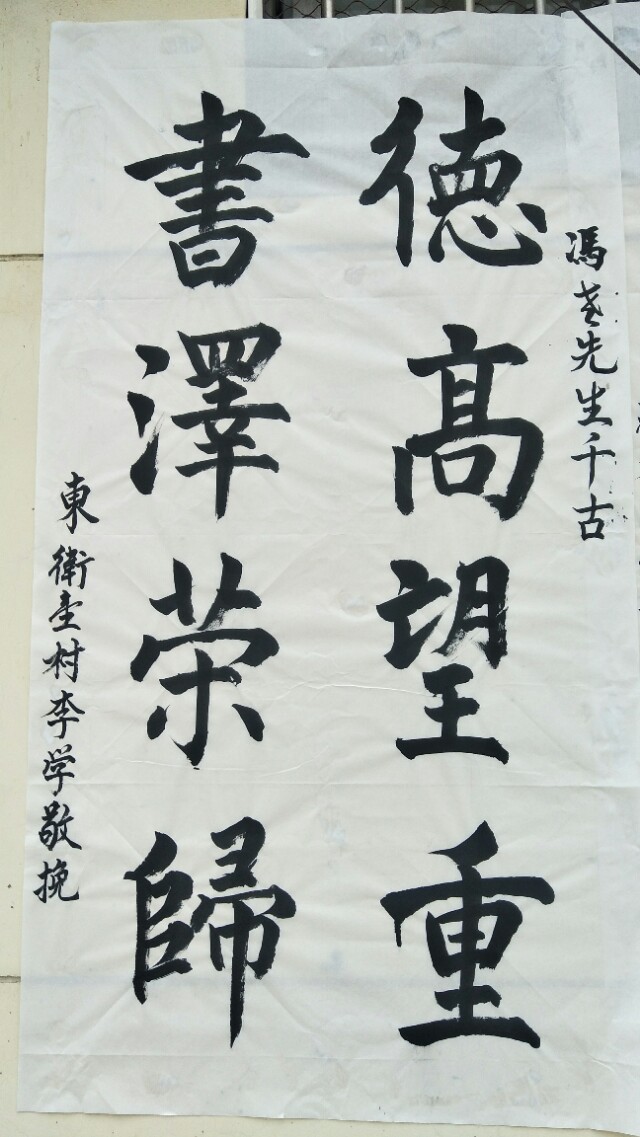 馮老先生千古
德高望重
書澤荣歸
東衛壹村李学敬挽